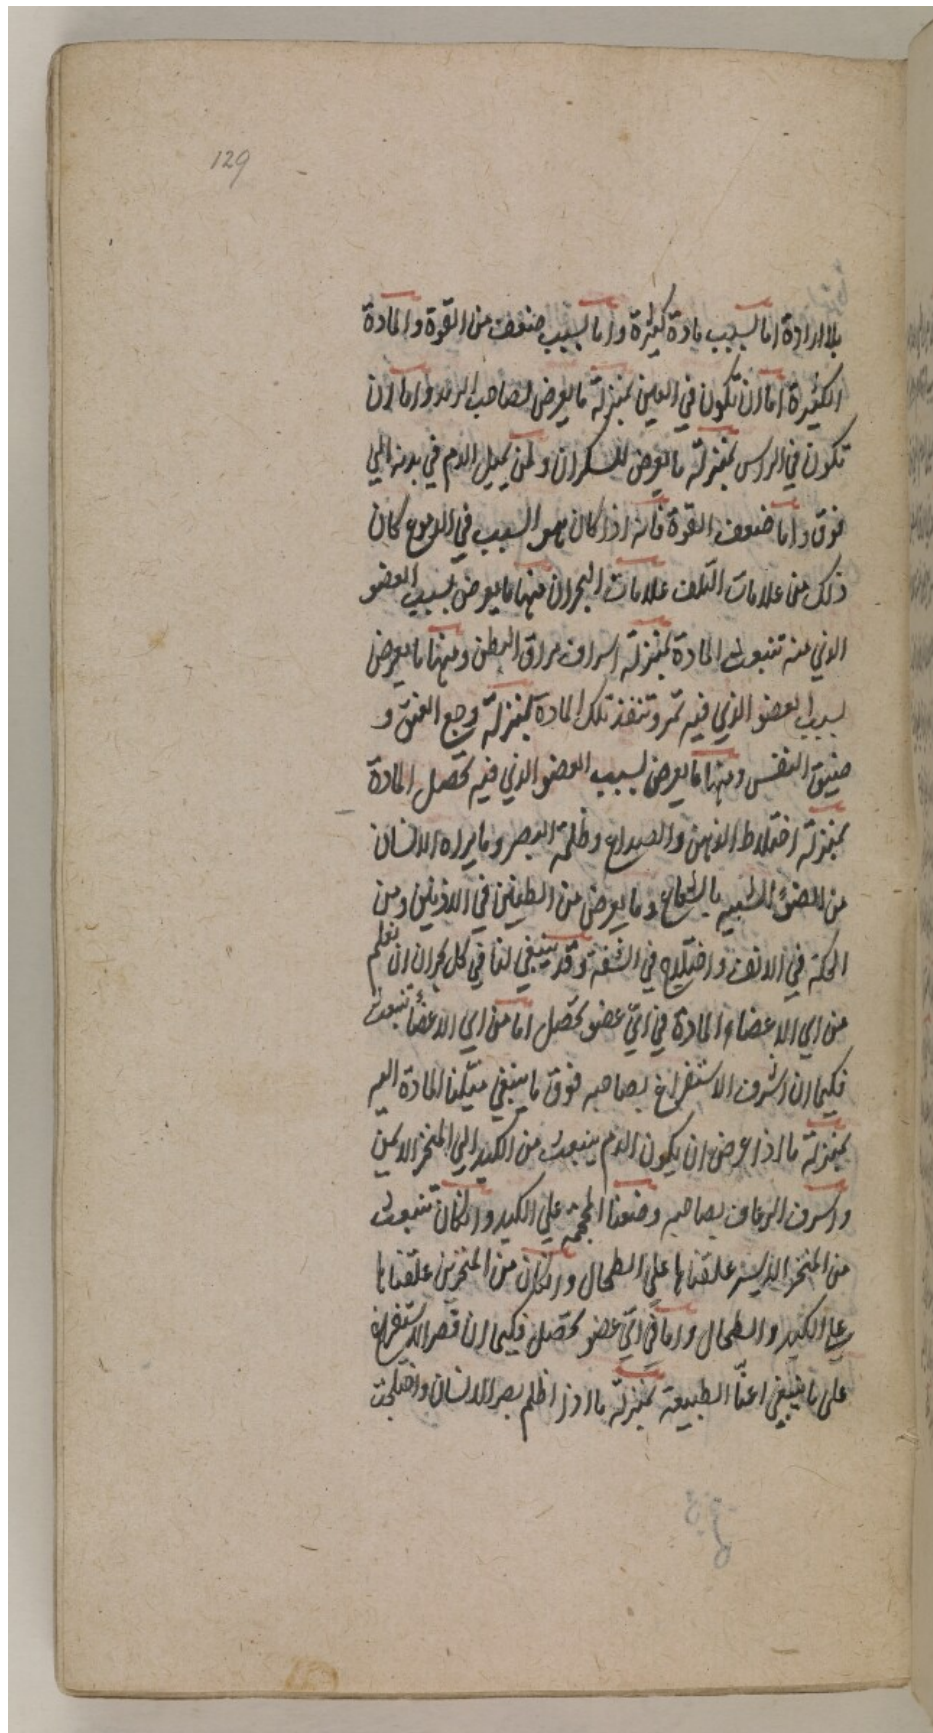 129
بلا ارادة اما لسبب مادة كثيرة واما لسبب ضعف من القوة والمادة
الكثيرة اما ان تكون في العين بمنزلة ما يعرض لصاحب الرمد واما ان
تكون في الراس بمنزلة ما يعرض للسكران ولمن يميل الدم في بدنه الي
فوق واما ضعف القوة فانه اذا كان هو السبب في الدموع كان
ذلك من علامات التلف علامات البحران منها ما يعرض بسبب العضو
الذي منه تنبعث المادة بمنزلة اسراف مراق البطن ومنها ما يعرض
بسبب العضو الذي فيه تمر وتنفذ تلك المادة بمنزلة وجع العنق و
ضيق النفس ومنها ما يعرض لسبب العضو الذي فيه تحصل المادة
بمنزلة اختلاط الذهن والصداع وظلمة البصر وما يراه الانسان
من الضوء الشبيه بالشعاع وما يعرض من الطنين في الاذنين ومن
الحكة في الانف واختلاج في الشفة وقد ينبغي لنا في كل بحران ان نعلم
من اي الاعضاء المادة في ايّ عضو تحصل اما من اي الاعضأ تنبعث
فكيما ان اشرف الاستفراغ بصاحبه فوق ما ينبغي ميّلنا المادة اليه
بمنزلة ما اذا عرض ان يكون الدم ينبعث من الكبد الي المنخر الايمن
واسرف الرعاف بصاحبه وضعنا المحجمة علي الكبد وان كان تنبعث
من المنخر الايسر علقناها علي الطحال وان كان من المنخرين علّقناها
علي الكبد والطحال واما في ايّ عضو تحصل فكيما ان قصر الاستفراغ
على ما ينبغي اعنّا الطبيعة بمنزلة ما اذا اظلم بصر الانسان واختلجت